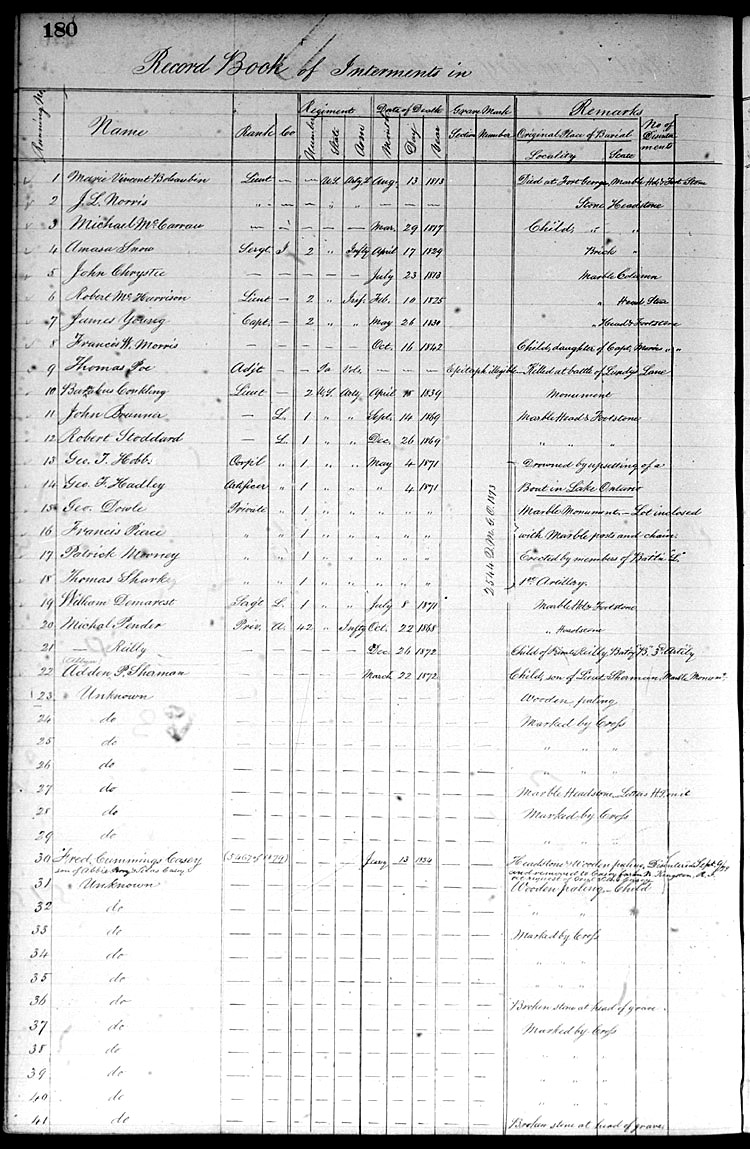 180
Record Book of Interments in
Running No. Name Rank Co Regiments Date of Death Grave Mark Remarks
Number State Arm Month Day Year Section Number Original Place of Burial No of Disinterments
Locality State
1 Marie Vincent Boisaubin Lieut — — U.S. Arty Aug. 13 1813 Died at Fort George, Marble Hd. & Foot Stone
2 J. L. Norris " — — " " — — — Stone Headstone
3 Michael McCarraw — — — — — Mar. 29 1817 Child, " "
4 Amasa Snow Sergt. I 2 " Infty April 17 1829 Brick "
5 John Chrystie — — — — — July 23 1813 Marble Column
6 Robert McHarrison Lieut — 2 " Inf. Feb. 10 1825 " Head Stone
7 James Young Capt. — 2 " " May 26 1830 " Head & Footstone
8 Francis W. Morris — — — — — Oct. 16 1842 Child, daughter of Capt. Morris " "
9 Thomas Poe Adjt — — Pa Vols — — — Epitaph illegible — Killed at battle of Lundy's Lane
10 Barakus Conkling Lieut — 2 U.S. Arty April 1839 Monument
11 John Brunner — L. 1 " " Sept. 14 1869 Marble Head & Footstone
12 Robert Stoddard — L. 1 " " Dec. 26 1869 " " "
13 Geo. T. Hobbs Corp'l " 1 " " May 4 1871 Drowned by upsetting of a
14 Geo. F. Hadley Artificer " 1 " " " 4 1871 Boat in Lake Ontario
15 Geo. Dowle Private " 1 " " " " " Marble Monument — Lot inclosed
16 Francis Pierce " " 1 " " " " " with Marble posts and chain.
17 Patrick Morney " " 1 " " " " " Erected by members of Batt'y "L"
18 Thomas Sharkey " " 1 " " " " " 1st Artillery.
2544 Q.M.G.O. 1873
19 William Demarest Serg't L. 1 " " July 8 1871 Marble Hd. & Footstone
20 Michal Pender Priv. A. 42 " Infty Oct. 22 1868 " Headstone
21 — Reilly — — — — — Dec. 26 1872 Child of Reilly Bat'ry "B" 3d Art'ly
22 Adden P. Shaman — — — — — March 22 1872 Child, son of Lieut. Sherman, Marble Monum't
23 Unknown — — — — — — — — Wooden paling
24 do — — — — — — — — Marked by Cross
25 do — — — — — — — — " " "
26 do — — — — — — — — " " "
27 do — — — — — — — — Marble Headstone — Letters H.
28 do — — — — — — — — Marked by Cross
29 do — — — — — — — — " " "
30 Fred. Cummings Casey (5467 of 1879) — — — Jany 13 1854 Headstone & Wooden paling, Disinterred Sept.
son of Abbie & Silas Casey and removed to Casey farm N. Kingston, R.I.
at request of Genl Silas Casey
31 Unknown — — — — — — — — Wooden paling — Child
32 do — — — — — — — — " " "
33 do — — — — — — — — Marked by Cross
34 do — — — — — — — — " " "
35 do — — — — — — — — " " "
36 do — — — — — — — — Broken stone at head of grave
37 do — — — — — — — — Marked by Cross
38 do — — — — — — — — " " "
39 do — — — — — — — — " " "
40 do — — — — — — — — " " "
41 do — — — — — — — — Broken stone at head of grave